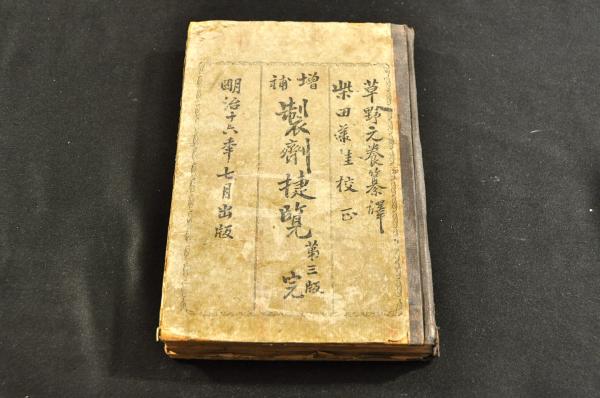 草野元養纂譯
柴田承桂校正
增補 製劑捷覽 第三版 完
明治十六年七月出版